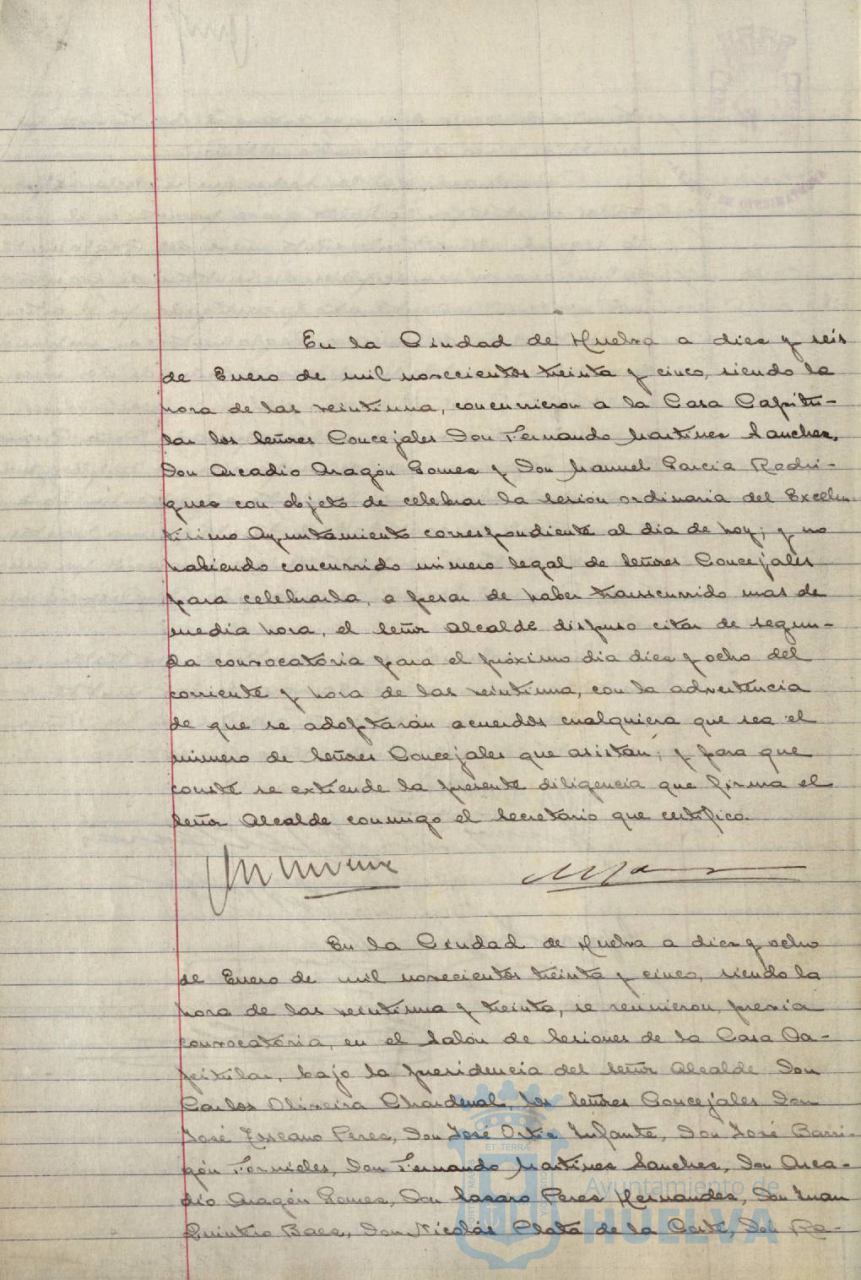 En la Ciudad de Huelva a diez y seis
de Enero de mil novecientos treinta y cinco, siendo la
hora de las veintiuna, concurrieron a la Casa Capitu-
lar los señores Concejales Don Fernando Martinez Sanchez,
Don Arcadio Aragón Gomez y Don Manuel Garcia Rodri-
guez con objeto de celebrar la sesion ordinaria del Excelen-
tisimo Ayuntamiento correspondiente al dia de hoy; y no
habiendo concurrido número legal de señores Concejales
para celebrarla, a pesar de haber transcurrido mas de
media hora, el señor Alcalde dispuso citar de segun-
da convocatoria para el próximo dia diez y ocho del
corriente y hora de las veintiuna, con la advertencia
de que se adoptarán acuerdos cualquiera que sea el
número de señores Concejales que asistan; y para que
conste se extiende la presente diligencia que firma el
señor Alcalde conmigo el Secretario que certifico.
En la Ciudad de Huelva a diez y ocho
de Enero de mil novecientos treinta y cinco, siendo la
hora de las veintiuna y treinta, se reunieron, previa
convocatoria, en el Salón de Sesiones de la Casa Ca-
pitular, bajo la presidencia del señor Alcalde Don
Carlos Oliveira Chardenal, los señores Concejales Don
José Toscano Perez, Don José Ortiz Infante, Don José Barri-
gón Fornieles, Don Fernando Martinez Sanchez, Don Arca-
dio Aragón Gomez, Don Lazaro Perez Hernandez, Don Juan
Quintero Baez, Don Nicolás Plata de la Corte, Don Ra-
Ayuntamiento de
HUELVA